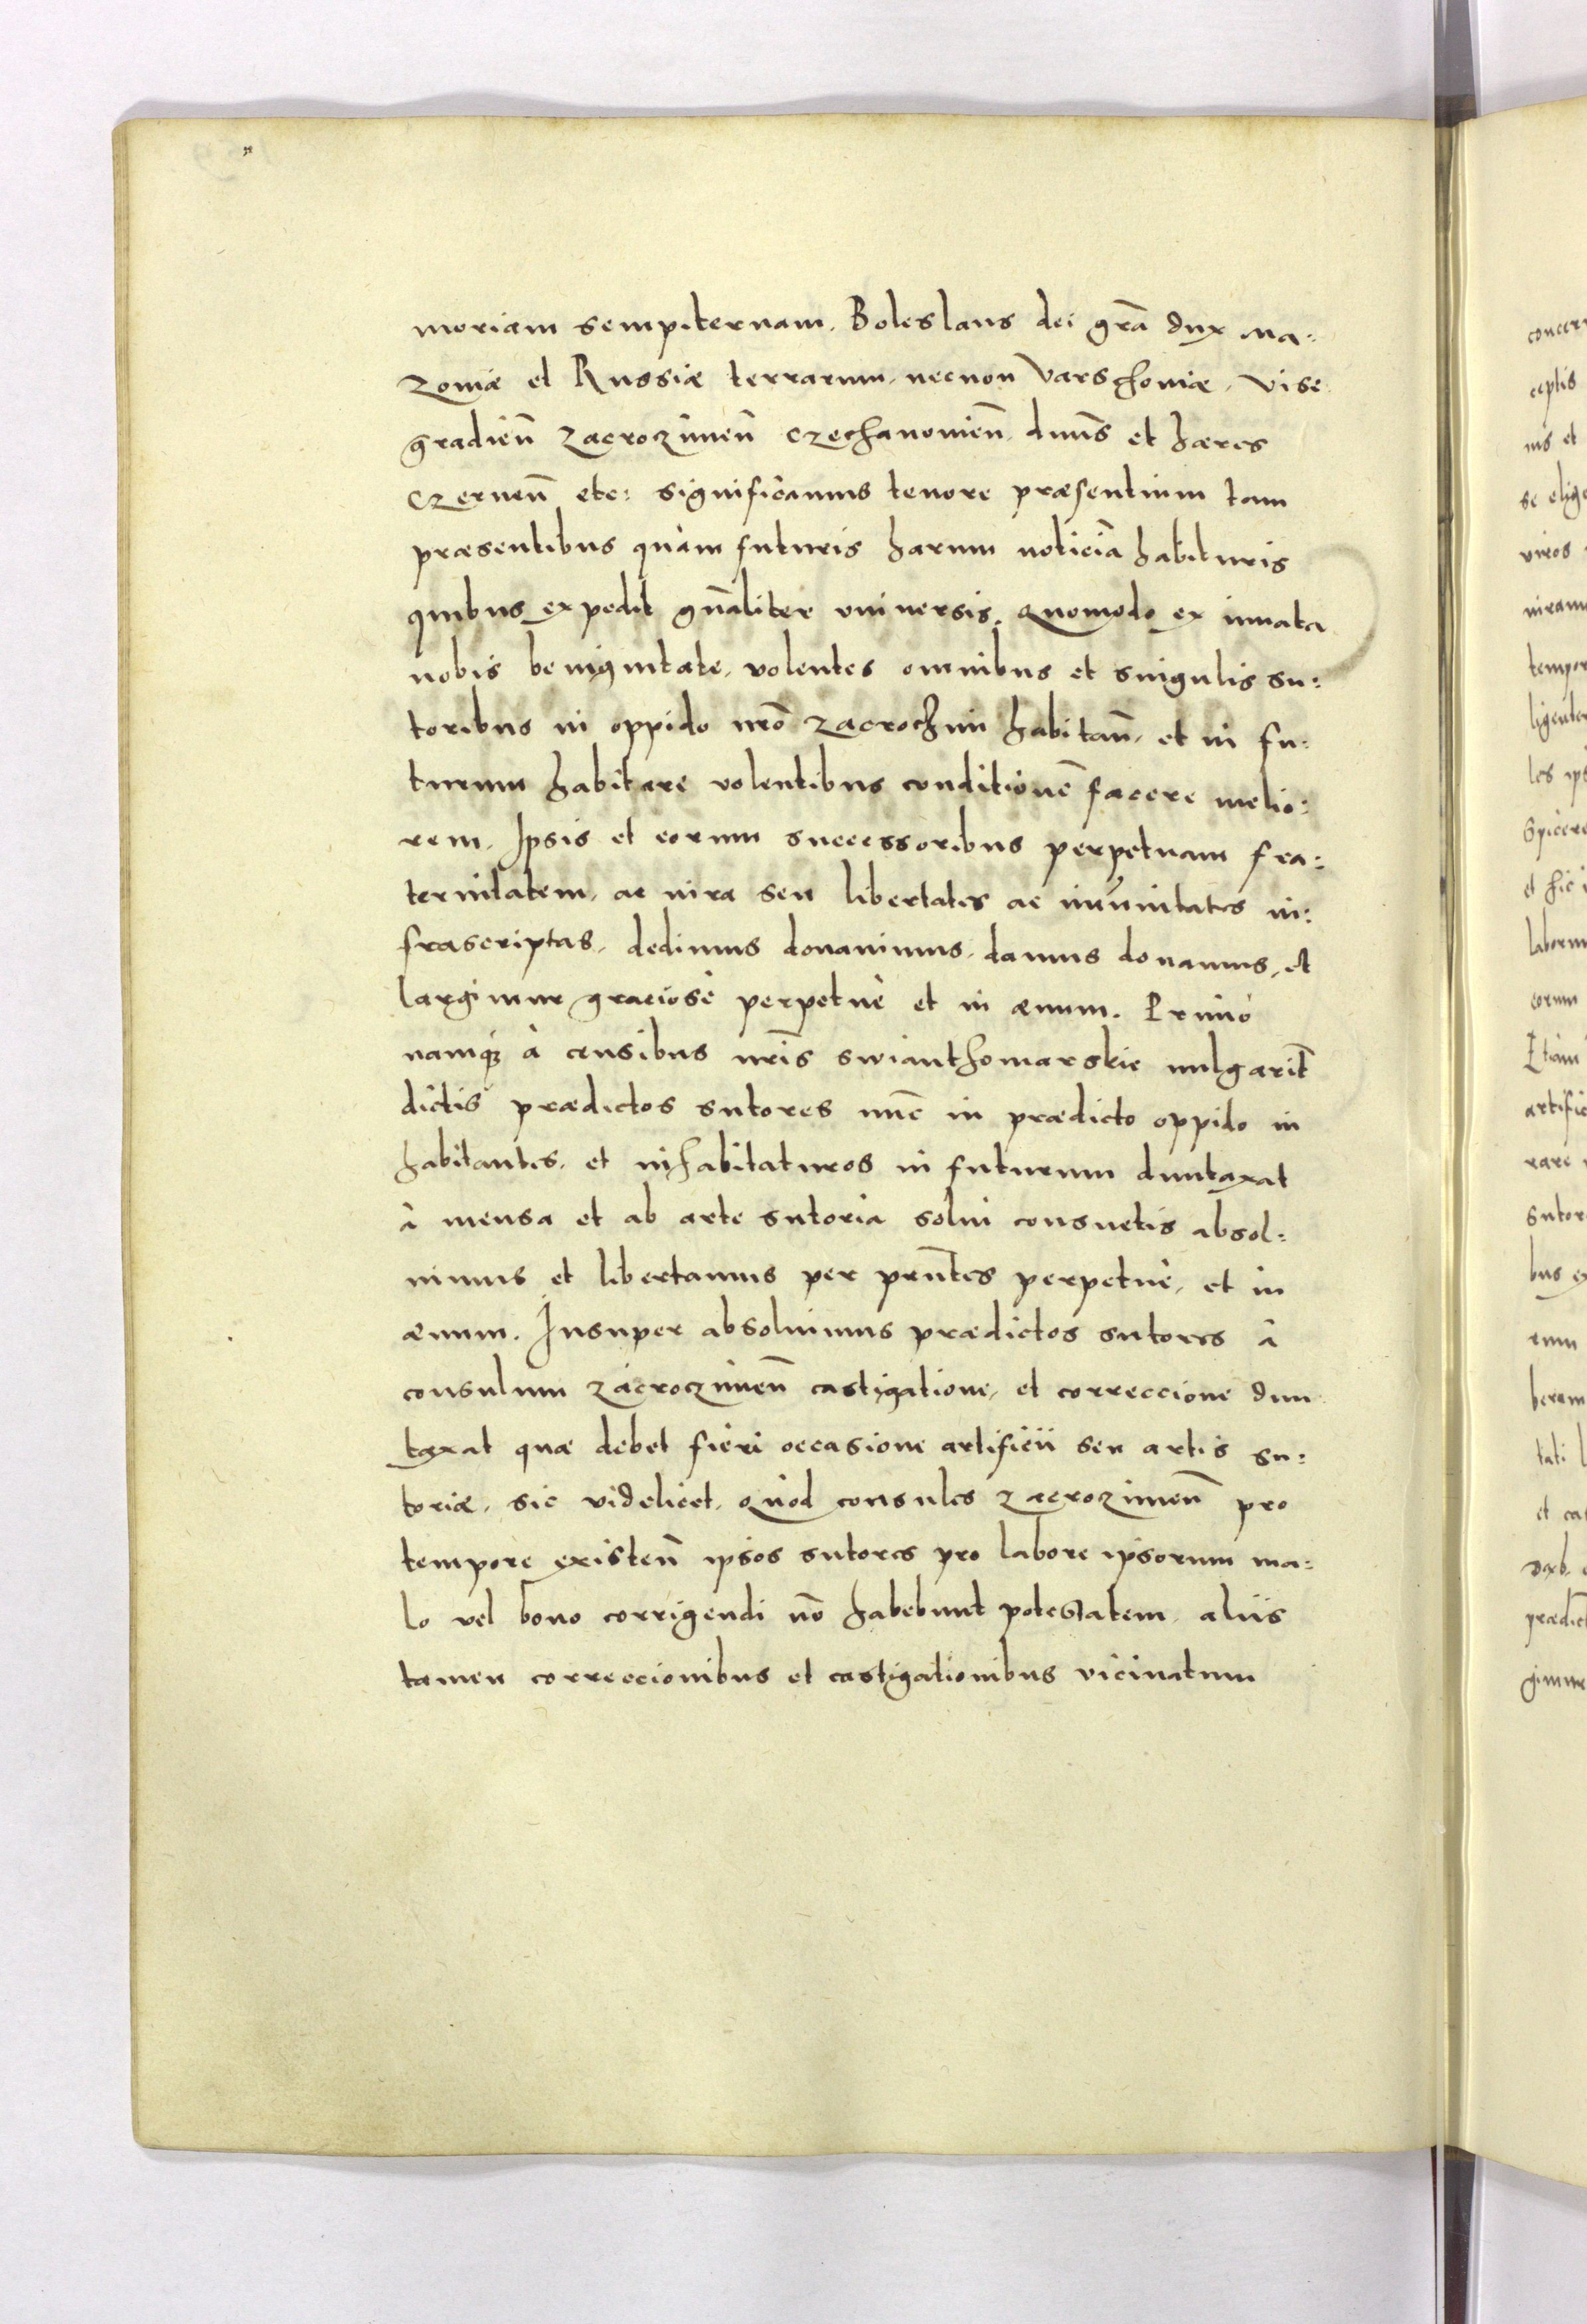 moriam sempiternam. Boleslaus dei grã dux Ma:
zouiæ et Russiæ terrarum, necnon Varschouiæ, Vise
gradień Zacrozimeñ Czechanouień, dnñs et hæres
Czerneñ etc: significamus tenore præsentium tam
præsentibus quàm futuris harum noticiã habituris
quibus expedit gñaliter vniuersis. Quomodo ex innata
nobis benignitate, volentes omnibus et singulis su:
toribus in oppido nrõ Zacrochim habitañ, et in fu:
turum habitare volentibus conditionẽ facere melio:
rem. Ipsis et eorum successoribus perpetuam fra:
ternitatem, ac iura seu libertates ac inmunitates in:
frascriptas, dedimus donauimus, damus donamus, et
largimur graciosè perpetuè et in æuum. Primò
namq̃ à censibus nrĩs swianthomarskie uulgarit̃
dictis prædictos sutores nũc in prædicto oppido in
habitantes, et inhabitaturos in futurum duntaxat
à mensa et ab arte sutoria solui consuetis absol:
uimus et libertamus per prñtes perpetuè, et in
æuum. Insuper absoluimus prædictos sutores à
consulum Zacrozimeñ castigatione, et correccione dun
taxat quæ debet fieri occasione artificii seu artis su:
toriæ, sic videlicet, quòd consules Zacrozimeñ pro
tempore existeñ ipsos sutores pro labore ipsorum ma:
lo vel bono corrigendi nõ habebunt potestatem, aliis
tamen correccionibus et castigationibus vicinatum